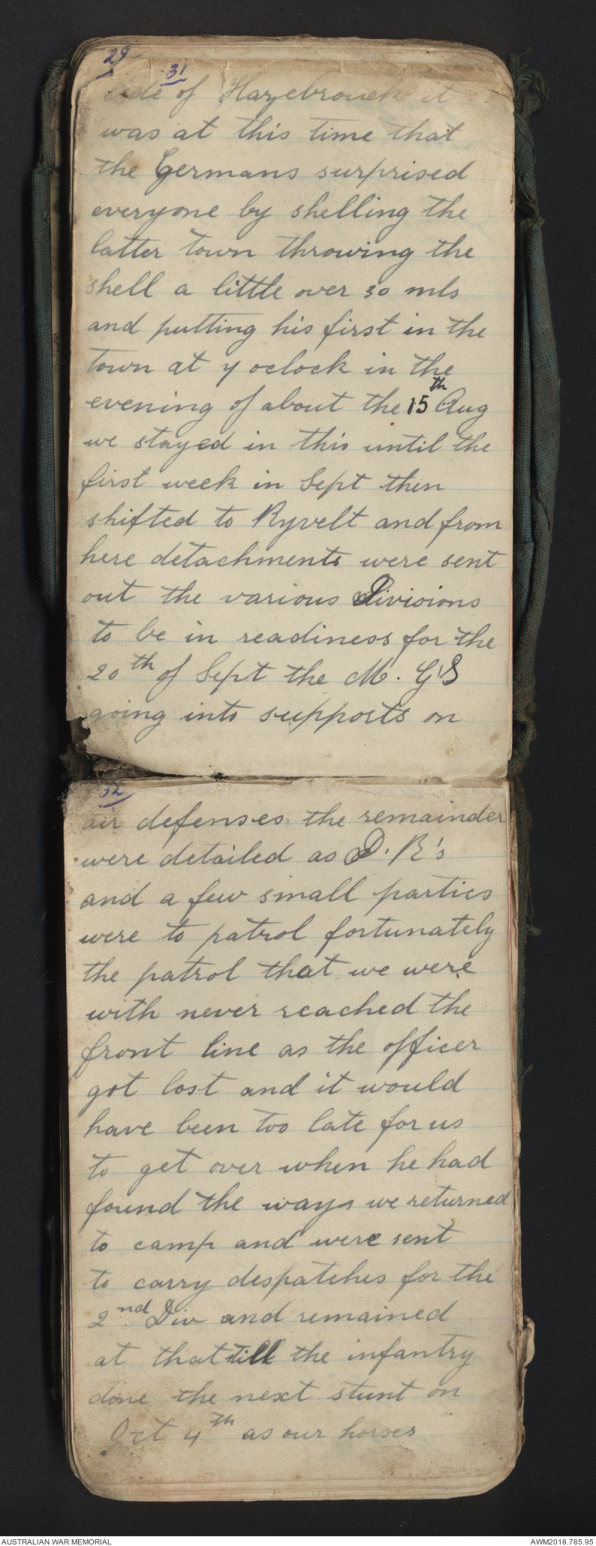 29
31
side of Hazebrouck it
was at this time that
the Germans surprised
everyone by shelling the
latter town throwing the
shell a little over 30 mls
and putting his first in the
town at y oclock in the
evening of about the 15th Aug
we stayed in this until the
first week in Sept then
shifted to Ryvelt and from
here detachments were sent
out the various Divisions
to be in readiness for the
20th of Sept the M. G'S
going into supports on
32
air defenses the remainder
were detailed as D. R's
and a few small parties
were to patrol fortunately
the patrol that we were
with never reached the
front line as the officer
got lost and it would
have been too late for us
to get over when he had
found the ways we returned
to camp and were sent
to carry despatches for the
2nd Div and remained
at that till the infantry
done the next stunt on
Oct 4th as our horses
AUSTRALIAN WAR MEMORIAL
AWM2018.785.95